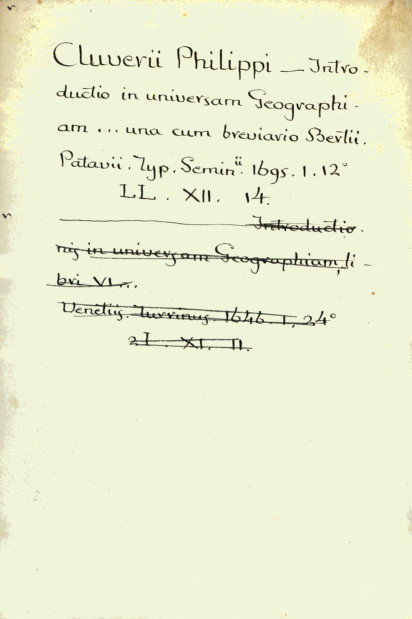 Cluverii Philippi — Intro-
ductio in universam Geographi-
am ... una cum breviario Bertii.
Patavii. Typ. Semin.ii 1695. 1. 12°
LL. XII. 14.
Introductio-
nis in universam Geographiam, li-
bri VI...
Venetiis. Turrinus 1646. 1. 24°
21. XI. II.